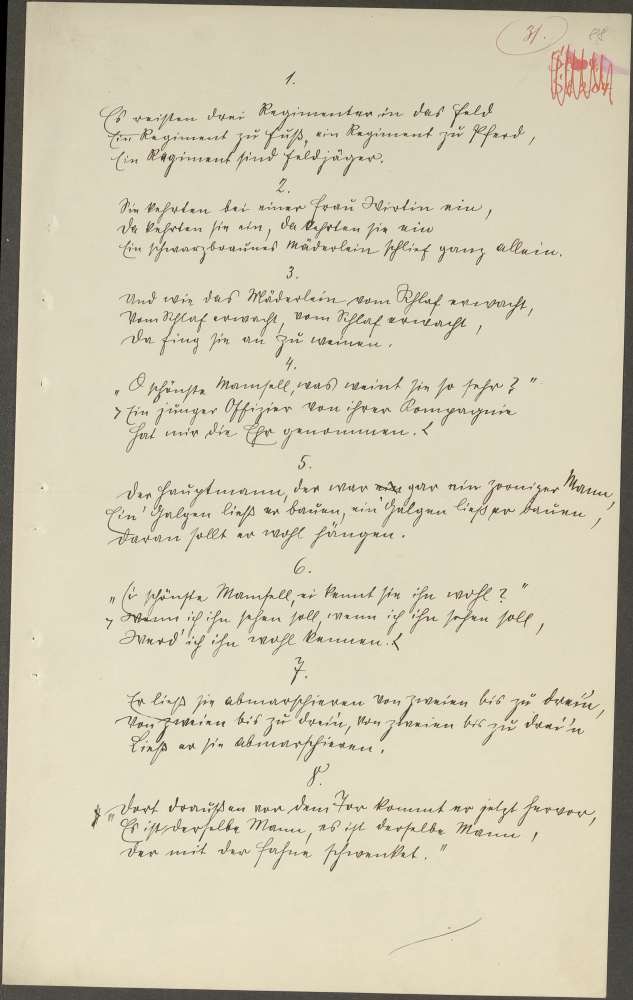 31.
88
1.
Es reisten drei Regimenter in das Feld
Ein Regiment zu Fuß, ein Regiment zu Pferd,
Ein Regiment sind Feldjäger.
2.
Sie kehrten bei einer Frau Wirtin ein,
Da kehrten sie ein, da kehrten sie ein
Ein schwarzbraunes Mäderlein schlief ganz allein.
3.
Und wie das Mäderlein vom Schlaf erwacht,
Vom Schlaf erwacht, vom Schlaf erwacht,
Da fing sie an zu weinen.
4.
„O schönste Mamsell, was weint sie so sehr?"
> Ein junger Offizier von ihrer Kompagnie
Hat mir die Ehr genommen. <
5.
Der Hauptmann, der war gar ein zorniger Mann,
Ein' Galgen ließ er bauen, ein' Galgen ließ er bauen,
Daran sollt er wohl hängen.
6.
„Ei schönste Mamsell, ei kennt sie ihn wohl?"
> Wenn ich ihn sehen soll, wenn ich ihn sehen soll,
Werd' ich ihn wohl kennen. <
7.
Er ließ sie abmarschieren von zweien bis zu drei'n,
Von zweien bis zu drei'n, von zweien bis zu drei'n
Ließ er sie abmarschieren.
8.
„Dort draußen vor dem Tor kommt er jetzt hervor,
Es ist derselbe Mann, es ist derselbe Mann,
Der mit der Fahne schwenket."